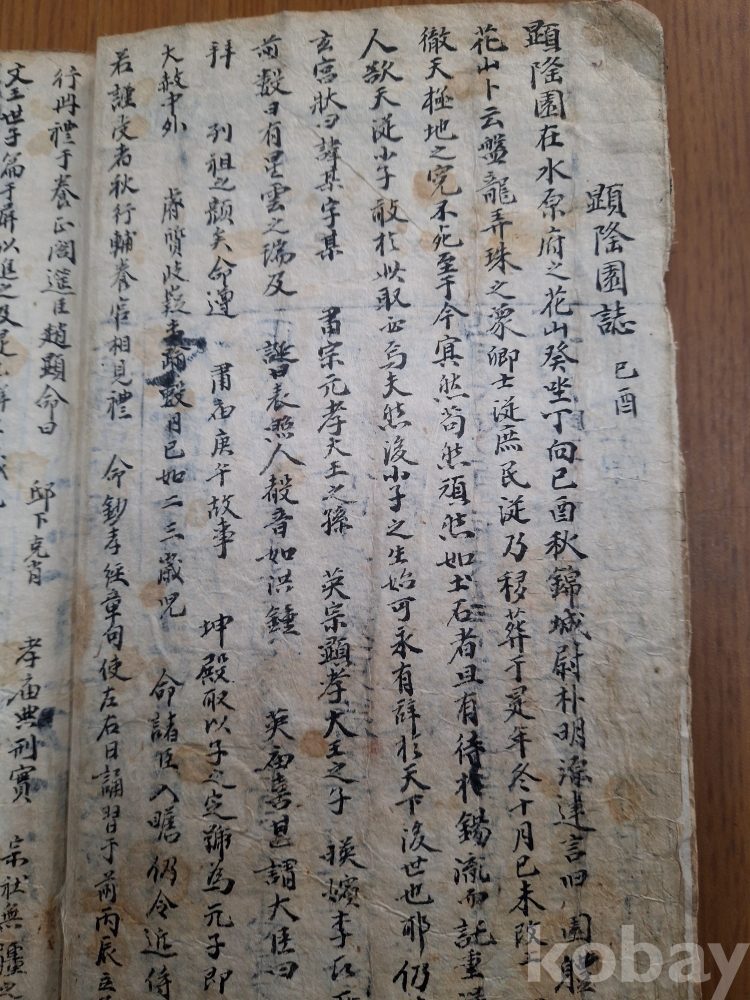 顯隆園誌 己酉
顯隆園在水原府之花山癸坐丁向己酉秋錦城尉朴明源建言曰園體
花山卜云盤龍弄珠之象卿士從庶民從乃移葬于是年冬十月己未改
徹天極地之冤不死至于今冥然苟然頑然如土石者且有待於錫胤而託重
人欲天從小子敢於此取必焉夫然後小子之生始可永有辭於天下後世也耶仍
玄宮狀曰諱某字某 肅宗元孝大王之孫 英宗顯孝大王之子 暎嬪李氏
前數日有星雲之瑞及 誕日表照人聲音如洪鐘 英廟喜甚謂大臣曰
拜 列祖之顏矣命遵 肅廟庚午故事 坤殿取以子之定號爲元子即
大赦中外 睿質岐嶷 數月已如二三歲兒 命諸臣入瞻仍令近侍
若謹度者秋行輔養官相見禮 命鈔孝經章句使左右日誦習于前丙辰
行冊禮于養正閤筵臣趙顯命曰 邸下克肖 孝廟典刑實 宗社無疆
文王世子篇于屏以進之及
kobay